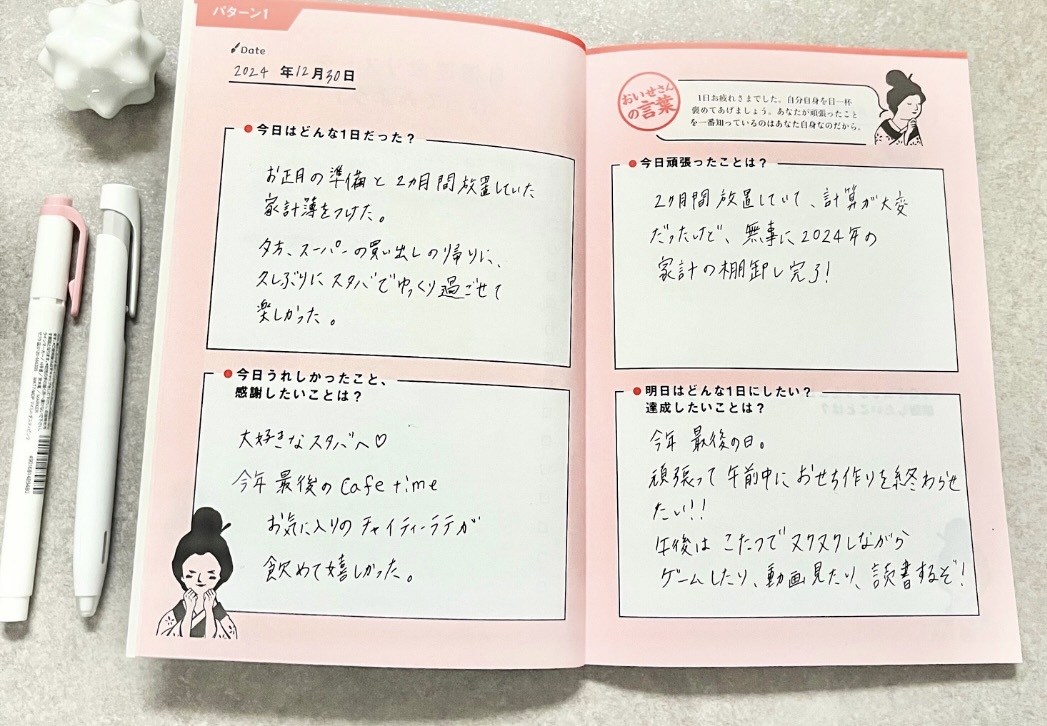 パターン1
Date
2024 年12月30日
今日はどんな1日だった?
お正月の準備と2ヵ月間放置していた
家計簿をつけた。
夕方、スーパーの買い出しの帰りに、
久しぶりにスタバでゆっくり過ごせて
楽しかった。
今日うれしかったこと、
感謝したいことは?
大好きなスタバへ♡
今年最後のCafe time
お気に入りのチャイティーラテが
飲めて嬉しかった。
おいせさん
の言葉
1日お疲れさまでした。自分自身を目一杯
褒めてあげましょう。あなたが頑張ったこと
を一番知っているのはあなた自身なのだから。
今日頑張ったことは?
2ヶ月間放置していて、計算が大変
だったけど、無事に2024年の
家計の棚卸し完了!
明日はどんな1日にしたい?
達成したいことは?
今年最後の日。
頑張って午前中におせち作りを終わらせ
たい!!
午後はこたつでヌクヌクしながら
ゲームしたり、動画見たり、読書するぞ!